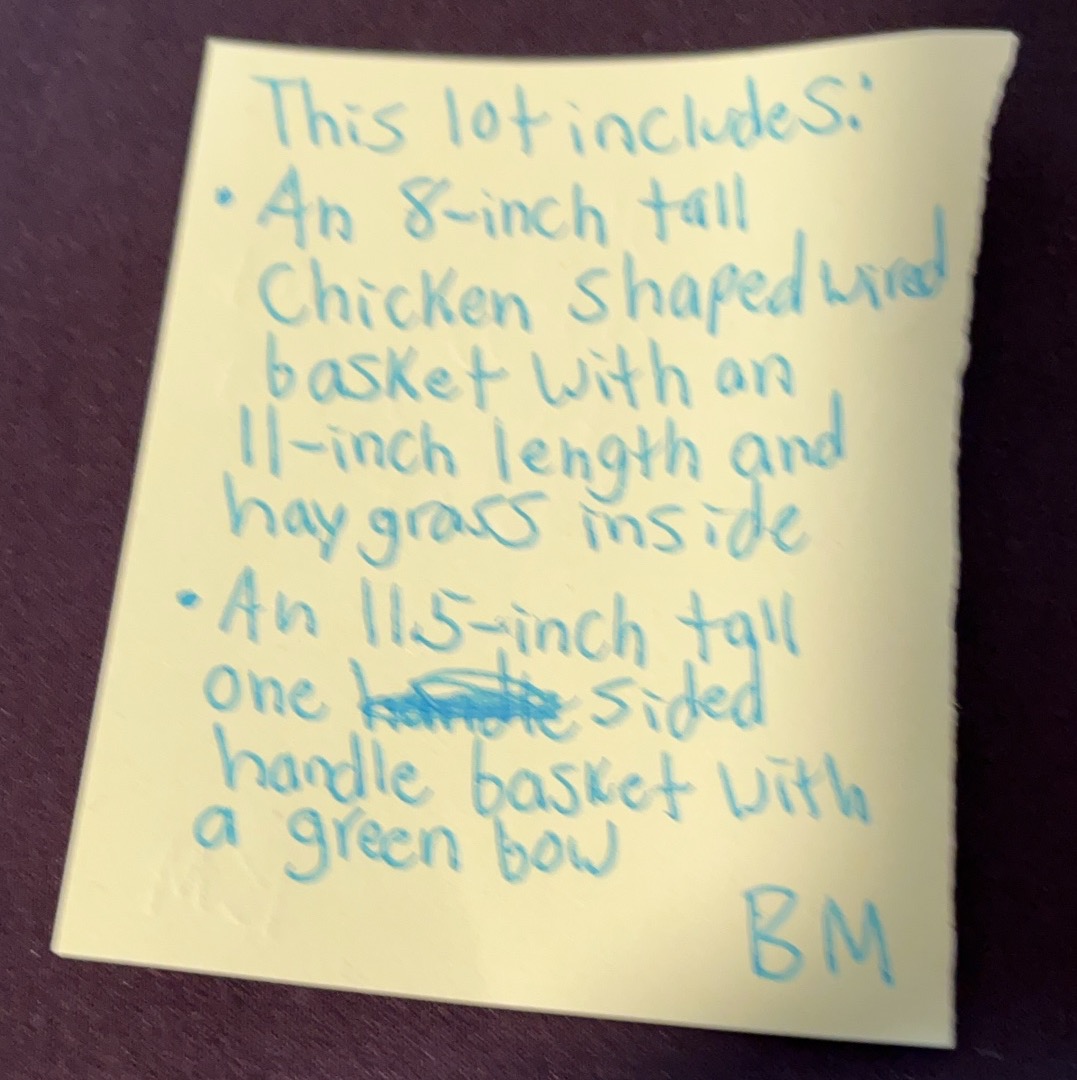 This lot includes:
• An 8-inch tall
Chicken shaped wired
basket with an
11-inch length and
hay grass inside
• An 11.5-inch tall
one sided
handle basket with
a green bow
BM